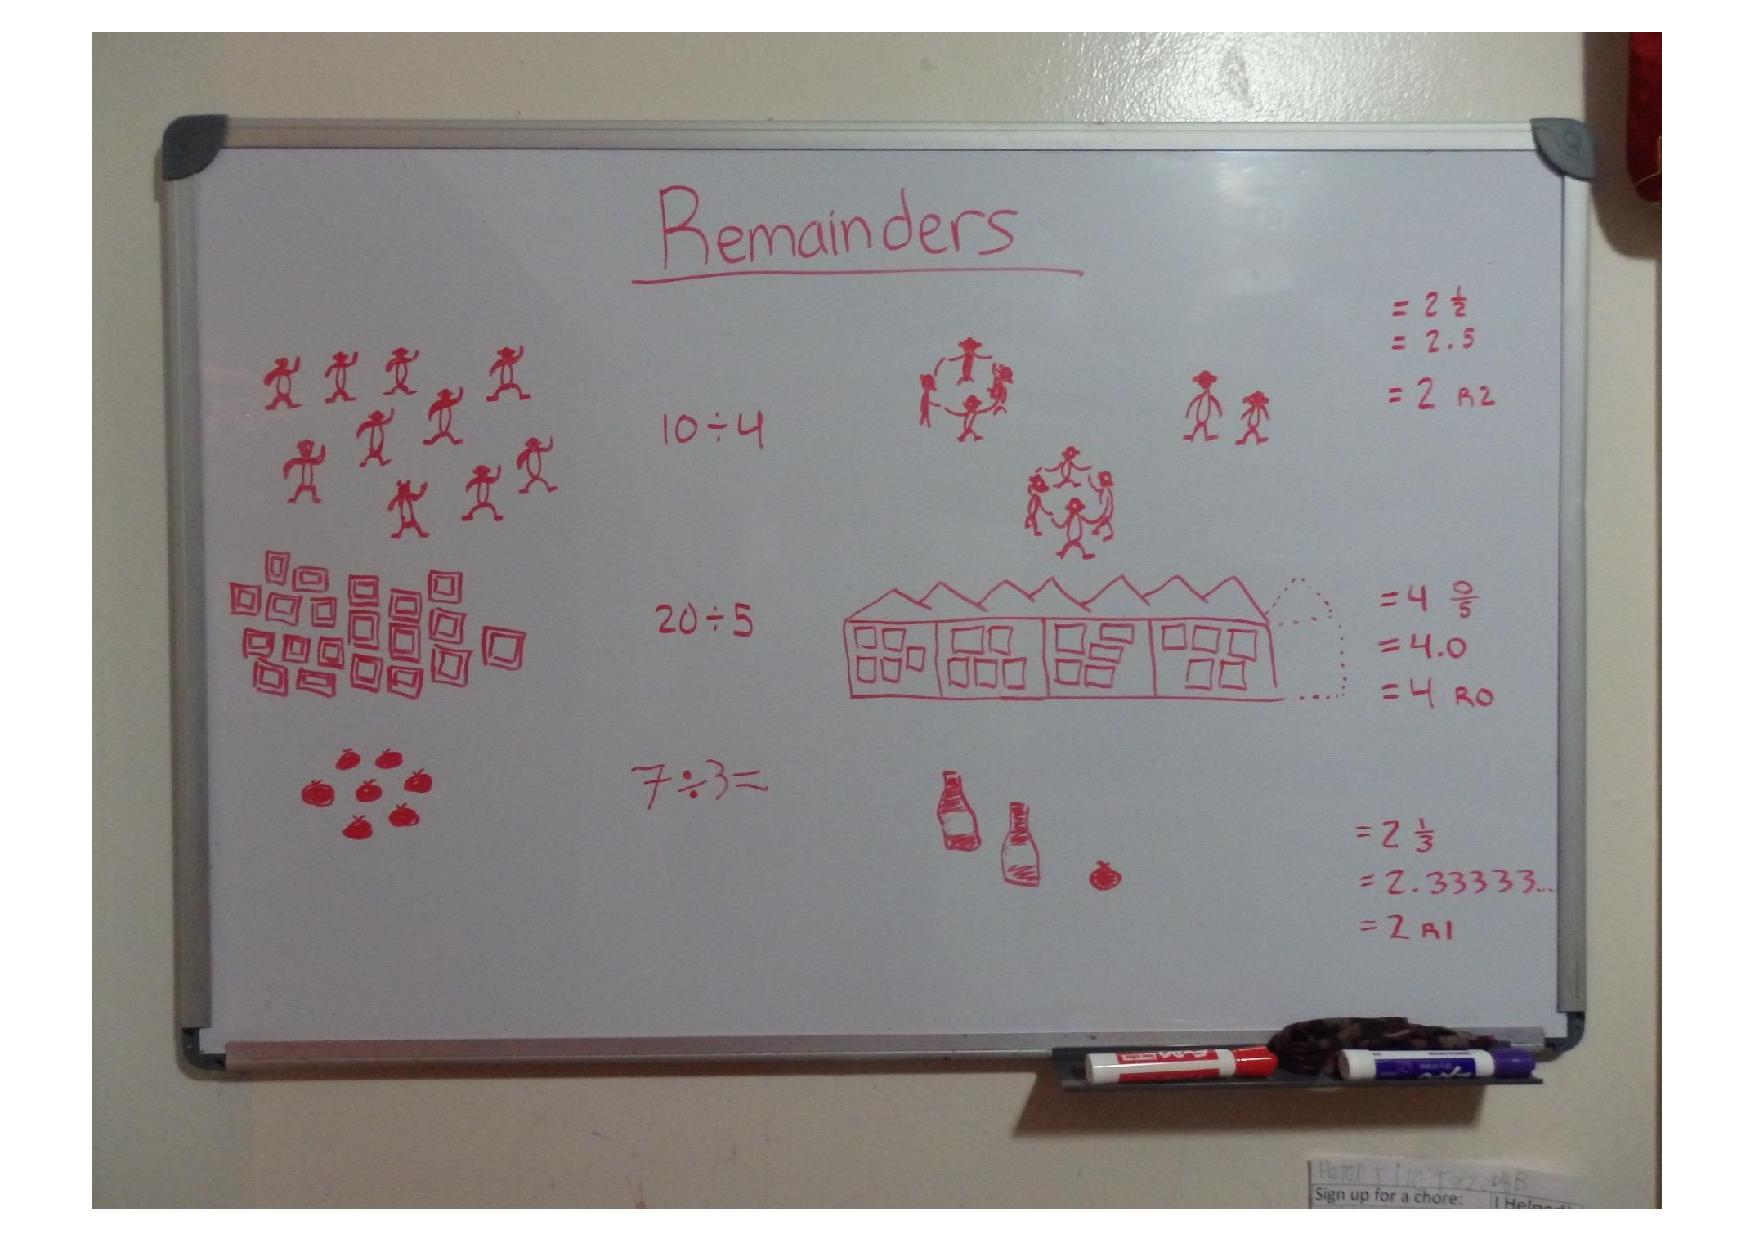 Remainders
10÷4
= 2 1/2
= 2.5
= 2 R2
20÷5
= 4 0/5
= 4.0
= 4 R0
7÷3=
= 2 1/3
= 2.33333...
= 2 R1
Sign up for a chore: